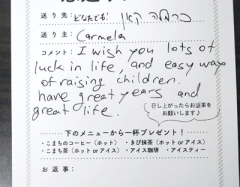 送り先：どなたでも！
送り主：Carmela
コメント：I wish you lots of
luck in life, and easy ways
of raising children.
have great years and
great life.
召し上がったらお返事を
お願いします♪
下のメニューから一杯プレゼント！
・こまちのコーヒー（ホット or アイス）・きび抹茶（ホット）
・こまち茶（ホット or アイス）・アイス珈琲・アイスティー
お返事：